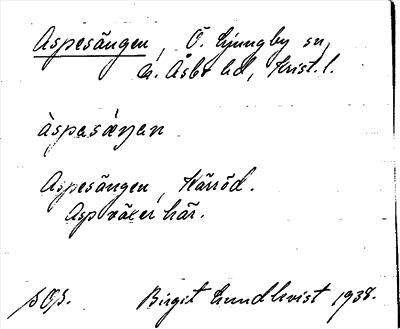 Aspesängen, Ö. Ljungby sn,
N. Åsbo hd, Krist. l.
àspasáŋan
Aspesängen, Kärröd.
Asp växer här.
Birgit Lundkvist 1938.